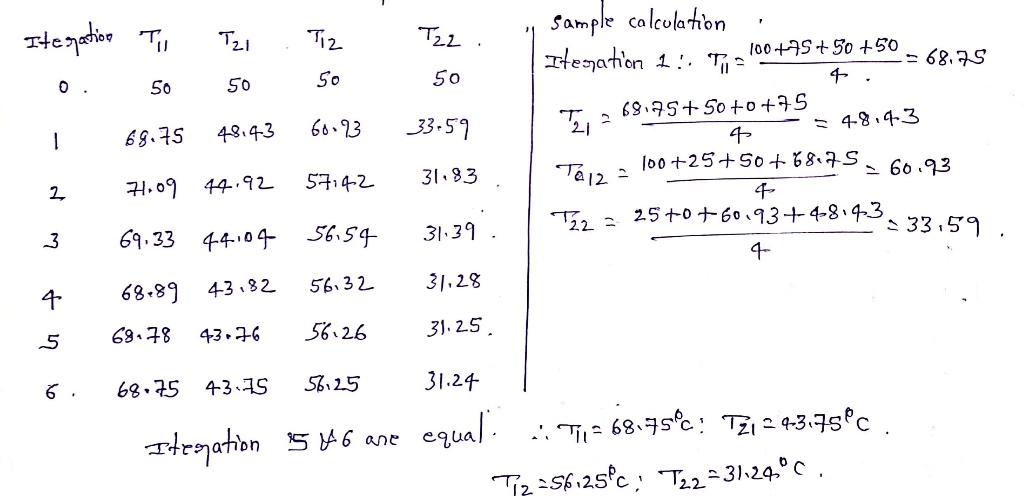 Iteration T11 T21 T12 T22.
0. 50 50 50 50
1 68.75 48.43 60.93 33.59
2 71.09 44.92 57.42 31.83.
3 69.33 44.04 56.54 31.39.
4 68.89 43.82 56.32 31.28
5 68.78 43.76 56.26 31.25.
6. 68.75 43.75 56.25 31.24
Sample calculation
Iteration 1:. T11 = 100+75+50+50 / 4 = 68.75
T21 = 68.75+50+0+75 / 4 = 48.43
T12 = 100+25+50+68.75 / 4 = 60.93
T22 = 25+0+60.93+48.43 / 4 = 33.59.
Iteration 5 & 6 are equal. ∴ T11 = 68.75°C: T21 = 43.75°C.
T12 = 56.25°C; T22 = 31.24°C.